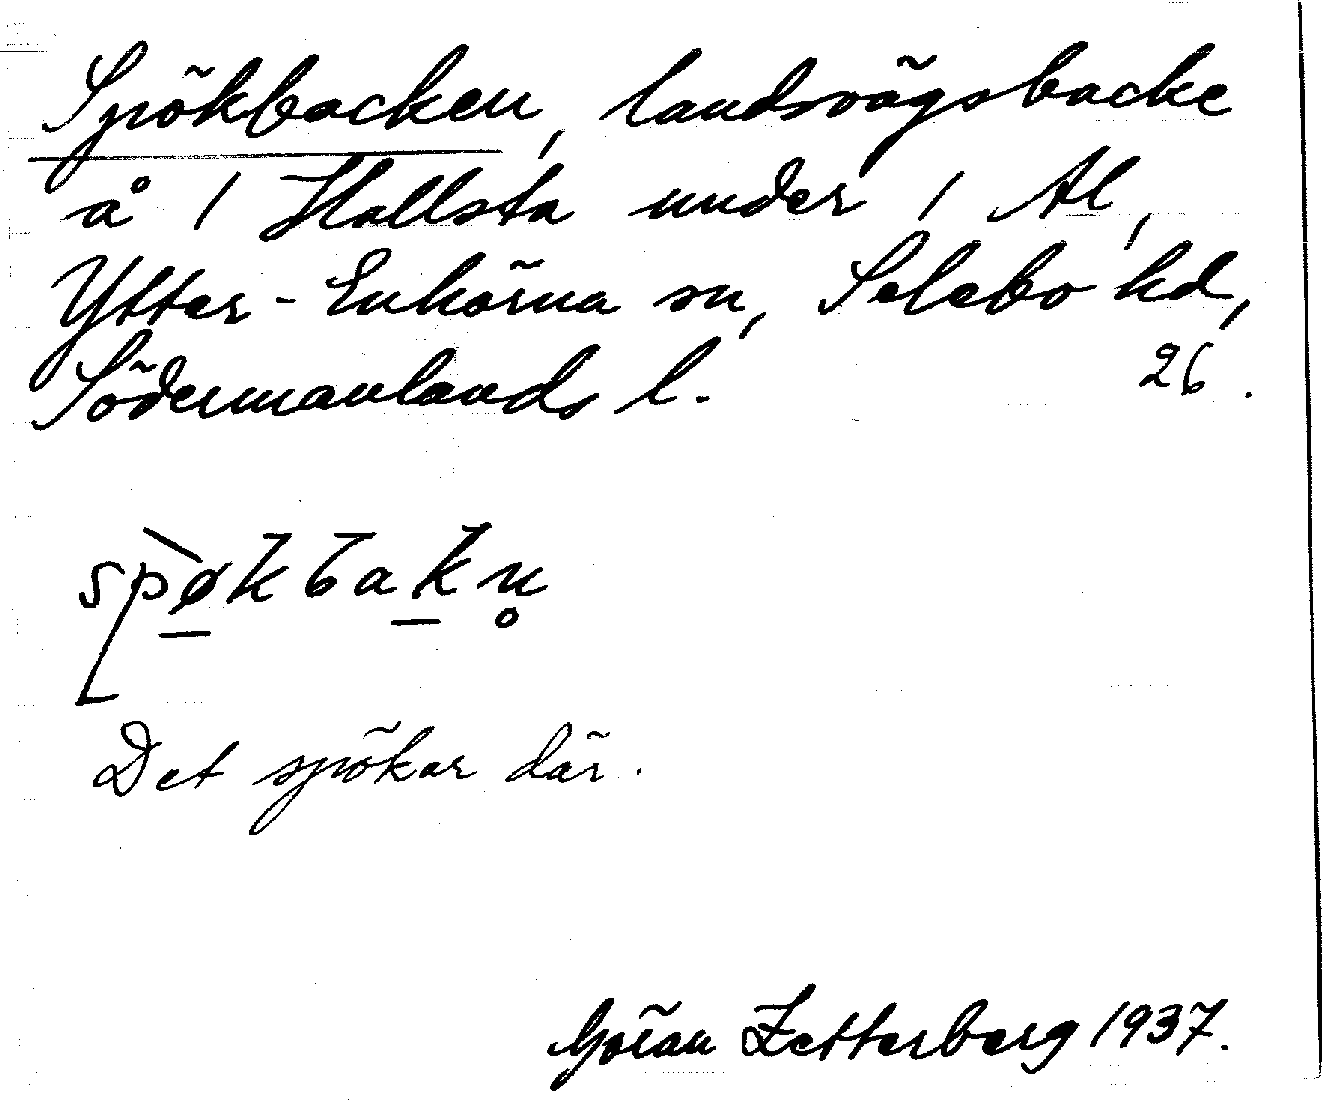 Spökbacken, landsvägsbacke
å 1 Hallsta under 1 Al,
Ytter-Enhörna sn, Selebo hd,
Södermanlands l. 26.
spø̀kbakn̥
Det spökar där.
Göran Zetterberg 1937.